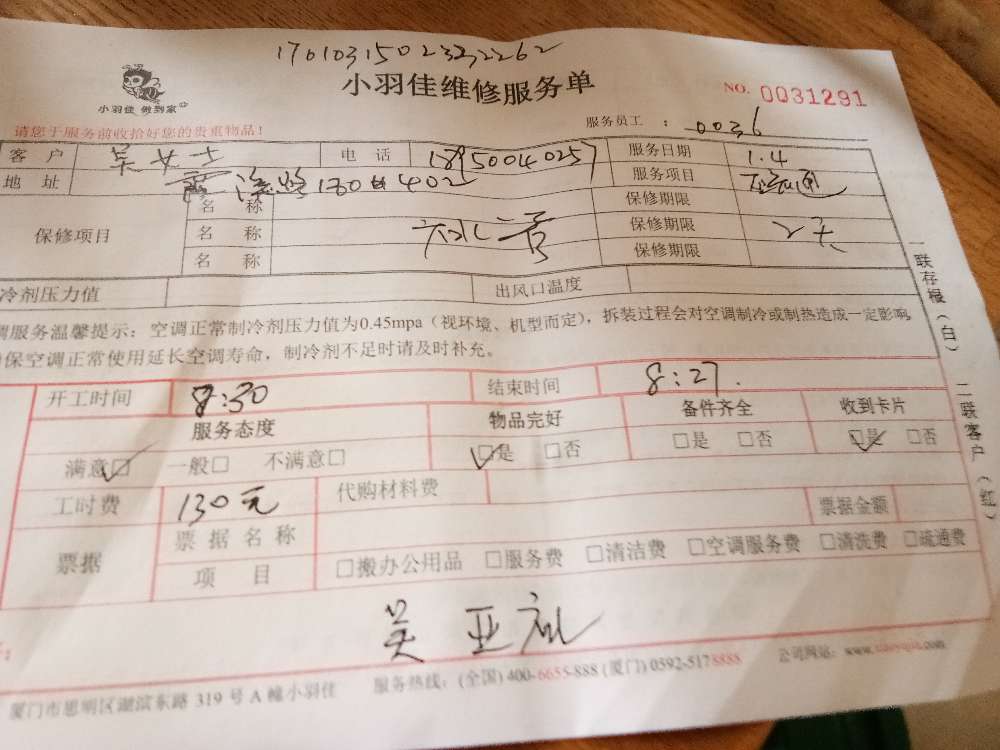 小羽佳维修服务单
NO. 0031291
小羽佳 做到家
请您于服务前收拾好您的贵重物品！
服务员工： 0036
客户 吴女士 电话 服务日期 1.4
地址 130 402 服务项目
保修项目 名称 保修期限
名称 保修期限 2天
名称 保修期限
冷剂压力值 出风口温度
调服务温馨提示：空调正常制冷剂压力值为0.45mpa（视环境、机型而定），拆装过程会对空调制冷或制热造成一定影响
保空调正常使用延长空调寿命，制冷剂不足时请及时补充。
开工时间 8:30 结束时间 8:27.
服务态度 物品完好 备件齐全 收到卡片
满意□ 一般□ 不满意□ □是 □否 □是 □否 □是 □否
工时费 130元 代购材料费 票据金额
票据 票据名称
项目 □搬办公用品 □服务费 □清洁费 □空调服务费 □清洗费 □疏通费
吴亚
厦门市思明区湖滨东路 319 号 A 幢小羽佳 服务热线：(全国) 400-6655-888 (厦门) 0592-5178888 公司网站：www.xiaoyujia.com
一联存根（白） 二联客户（红）